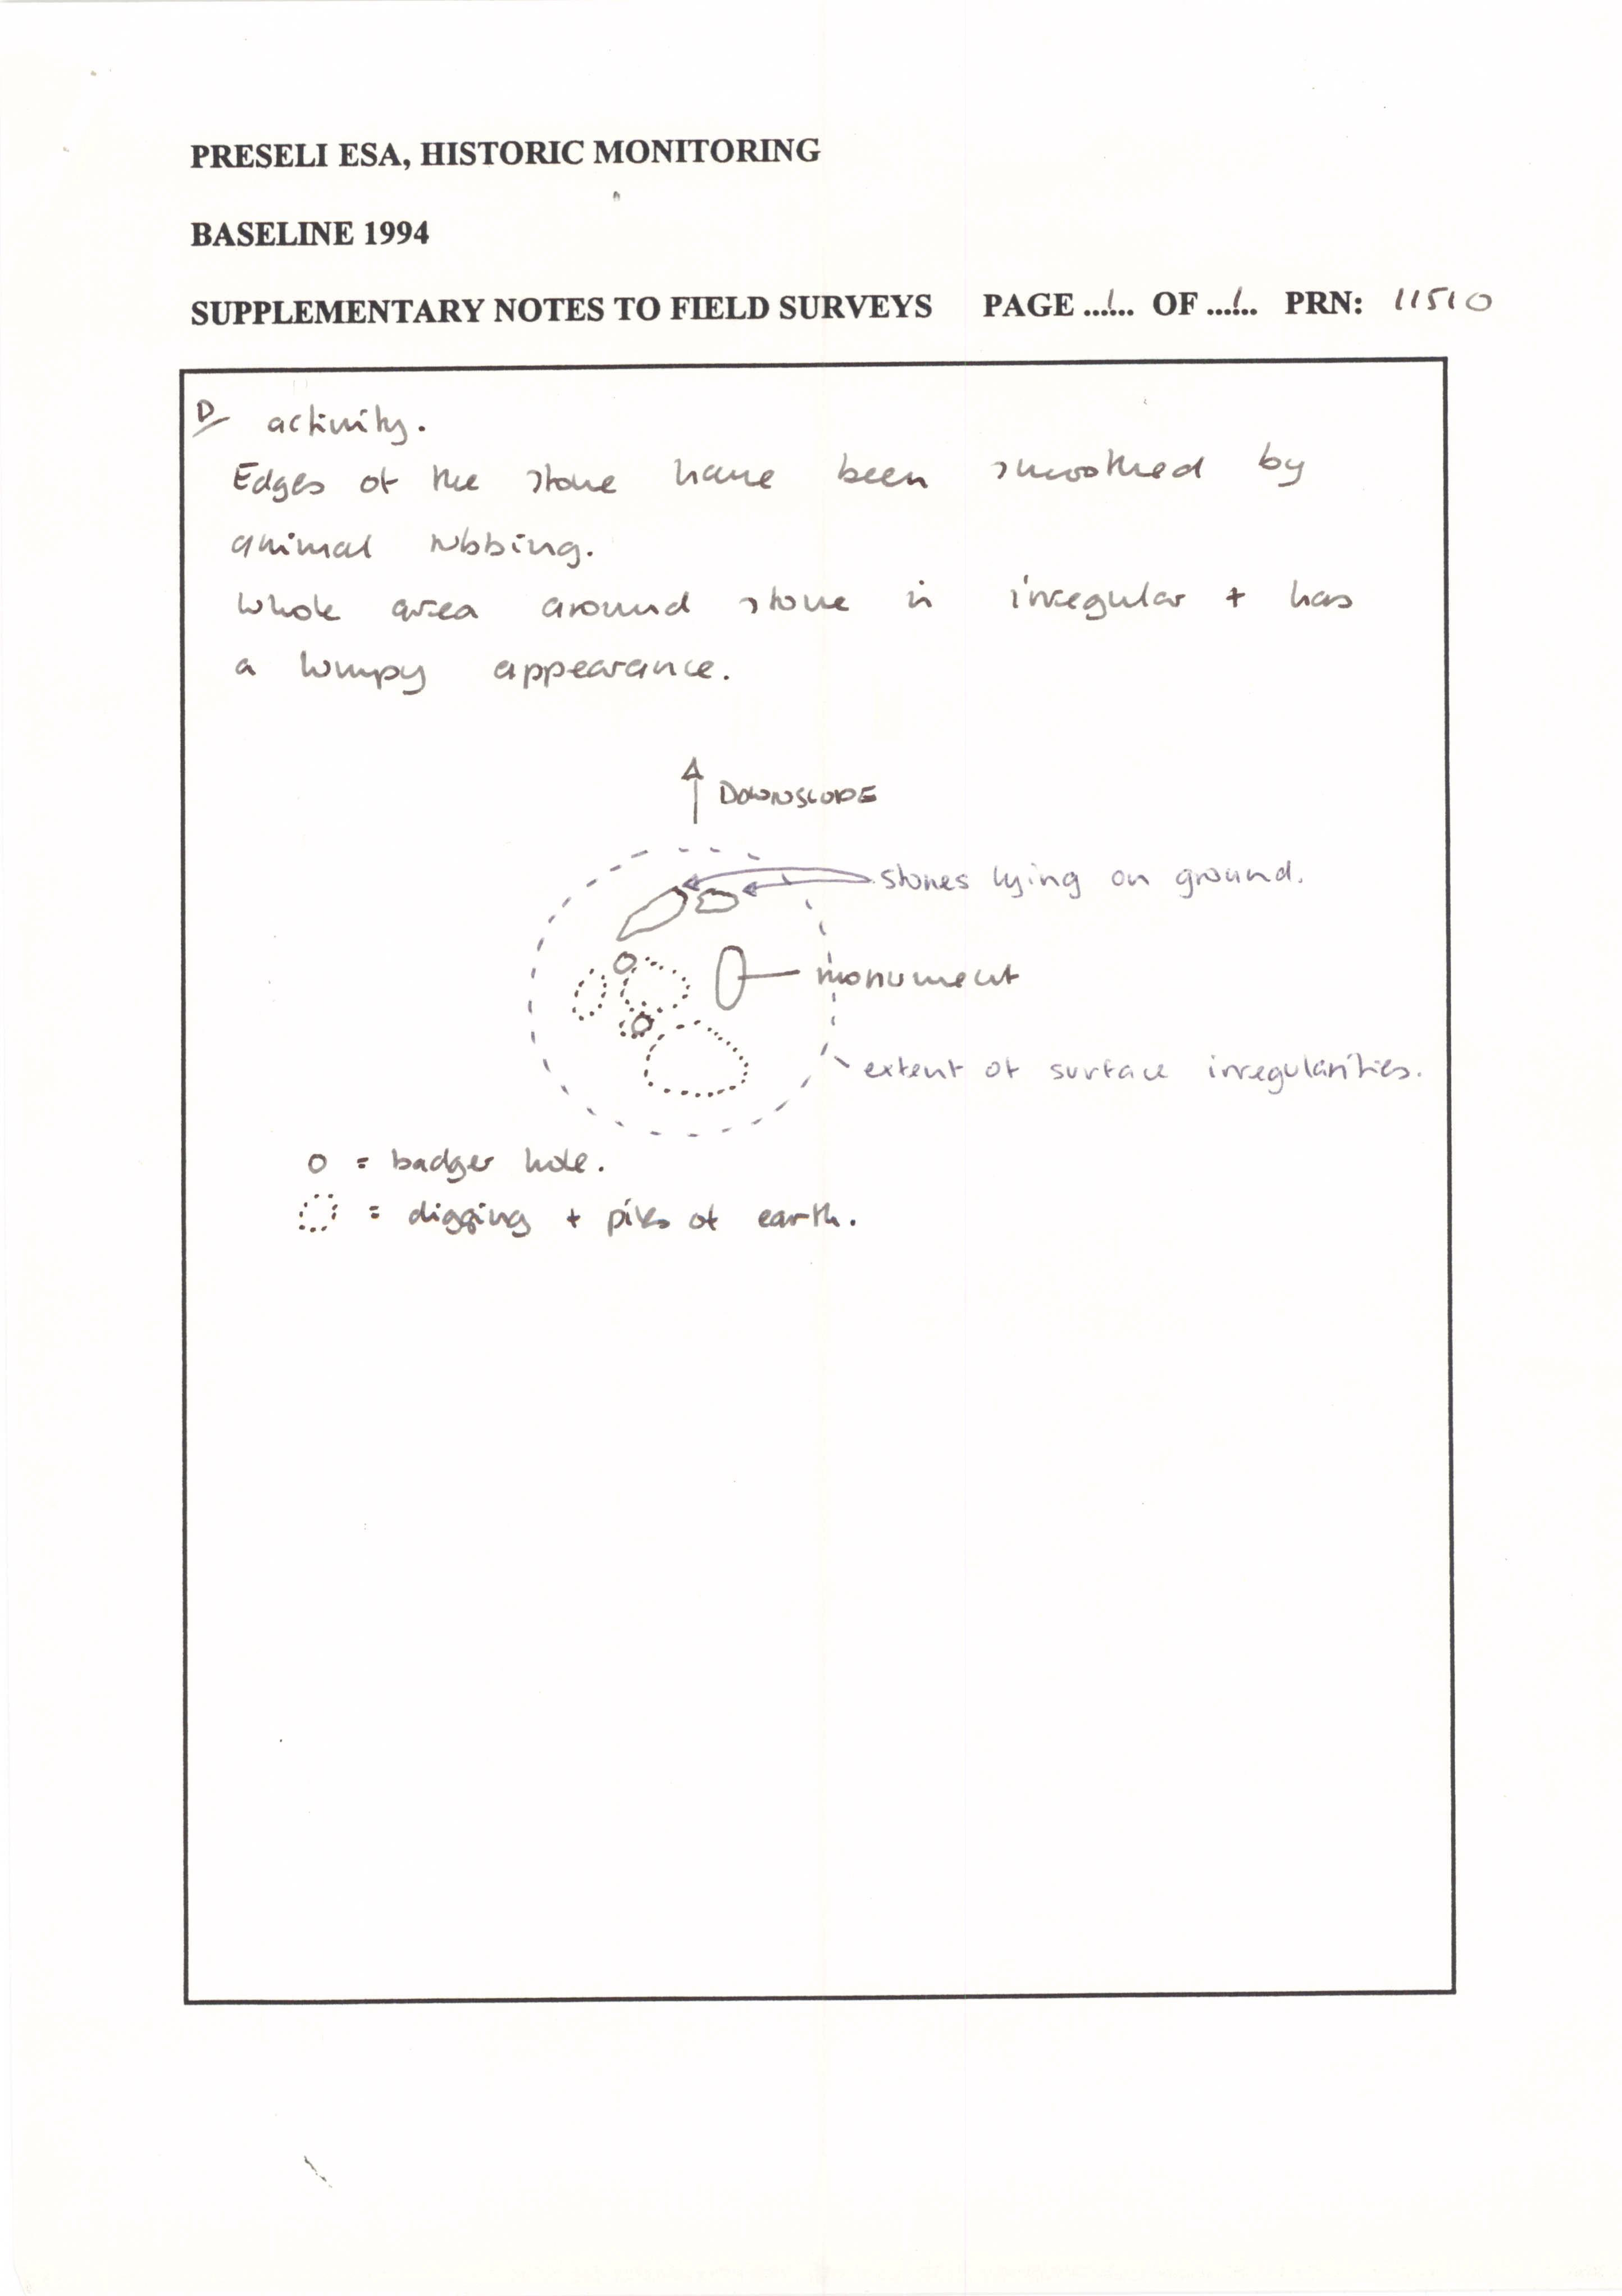 PRESELI ESA, HISTORIC MONITORING
BASELINE 1994
SUPPLEMENTARY NOTES TO FIELD SURVEYS PAGE ...1... OF ...1... PRN: 11510
D/ activity.
Edges of the stone have been smoothed by
animal rubbing.
Whole area around stone is irregular + has
a lumpy appearance.
DOWNSLOPE
stones lying on ground.
monument
extent of surface irregularities.
o = badger hole.
= digging + piles of earth.